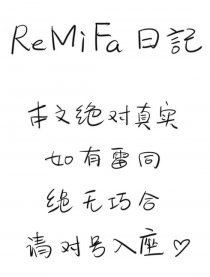 ReMiFa 日記
本文绝对真实
如有雷同
绝无巧合
请对号入座♡